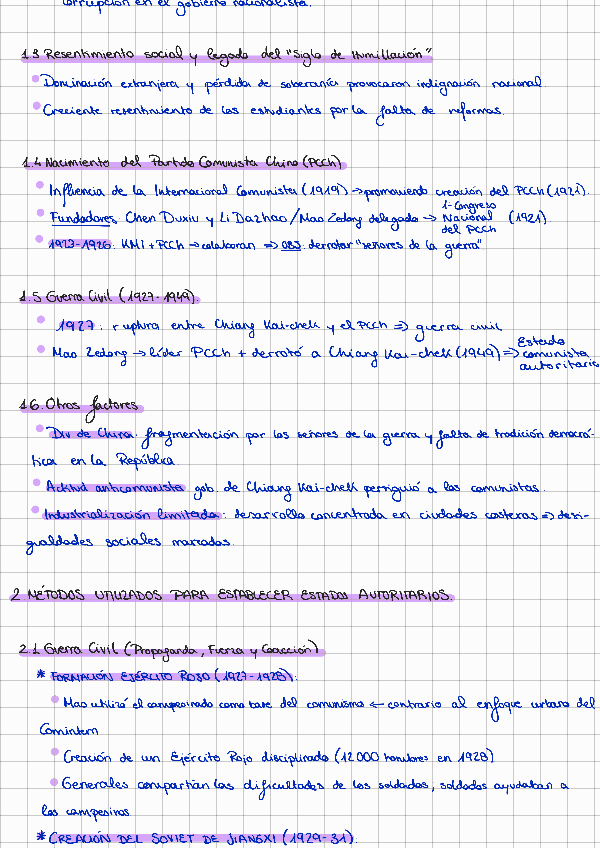 corrupción en el gobierno nacionalista.
1.3 Resentimiento social y legado del "Siglo de Humillación"
Dominación extranjera y pérdida de soberanía provocaron indignación nacional
Creciente resentimiento de los estudiantes por la falta de reformas.
1.4 Nacimiento del Partido Comunista Chino (PCCh)
Influencia de la Internacional Comunista (1919) → promoviendo creación del PCCh (1921).
Fundadores: Chen Duxiu y Li Dazhao / Mao Zedong delegado → 1º Congreso Nacional del PCCh (1921)
1923-1926: KMT + PCCh → colaboran ⇒ OBJ: derrotar "señores de la guerra"
1.5 Guerra Civil (1927-1949).
1927: ruptura entre Chiang Kai-chek y el PCCh ⇒ guerra civil
Mao Zedong → líder PCCh + derrotó a Chiang Kai-chek (1949) ⇒ Estado comunista autoritario
1.6. Otros factores
Div de China: fragmentación por los señores de la guerra y falta de tradición democrá-
tica en la República.
Actitud anticomunista: gob. de Chiang Kai-chek persiguió a los comunistas.
Industrialización limitada: desarrollo concentrada en ciudades costeras ⇒ desi-
gualdades sociales marcadas.
2. MÉTODOS UTILIZADOS PARA ESTABLECER ESTADOS AUTORITARIOS.
2.1 Guerra Civil (Propaganda, Fuerza y Coacción)
* FORMACIÓN EJÉRCITO ROJO (1927-1928):
Mao utilizó el campesinado como base del comunismo ← contrario al enfoque urbano del
Comintern
Creación de un Ejército Rojo disciplinado (12000 hombres en 1928)
Generales compartían las dificultades de los soldados, soldados ayudaban a
los campesinos.
* CREACIÓN DEL SOVIET DE JIANGXI (1929-31):